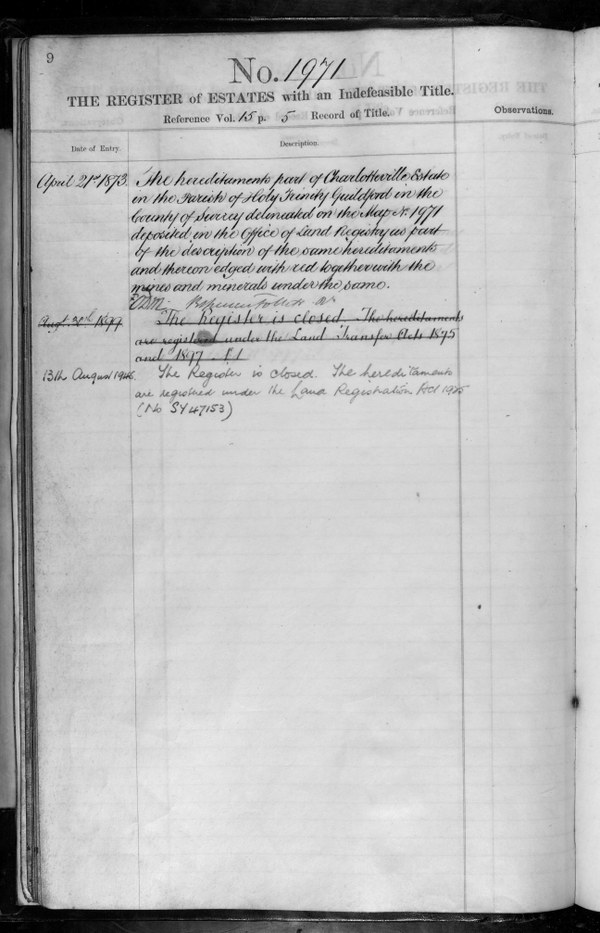 9
No. 1971
THE REGISTER of ESTATES with an Indefeasible Title.
Reference Vol. 15 p. 5 Record of Title.
Observations.
Date of Entry.
Description.
April 21st 1873.
The hereditaments part of Charlotteville Estate
in the Parish of Holy Trinity Guildford in the
County of Surrey delineated on the Map No. 1971
deposited in the Office of Land Registry as part
of the description of the same hereditaments
and thereon edged with red together with the
mines and minerals under the same.
Augt. 1899
The Register is closed. The hereditaments
are registered under the Land Transfer Acts 1875
and 1897.
13th August 1946.
The Register is closed. The hereditaments
are registered under the Land Registration Act 1925
(No SY 47153)